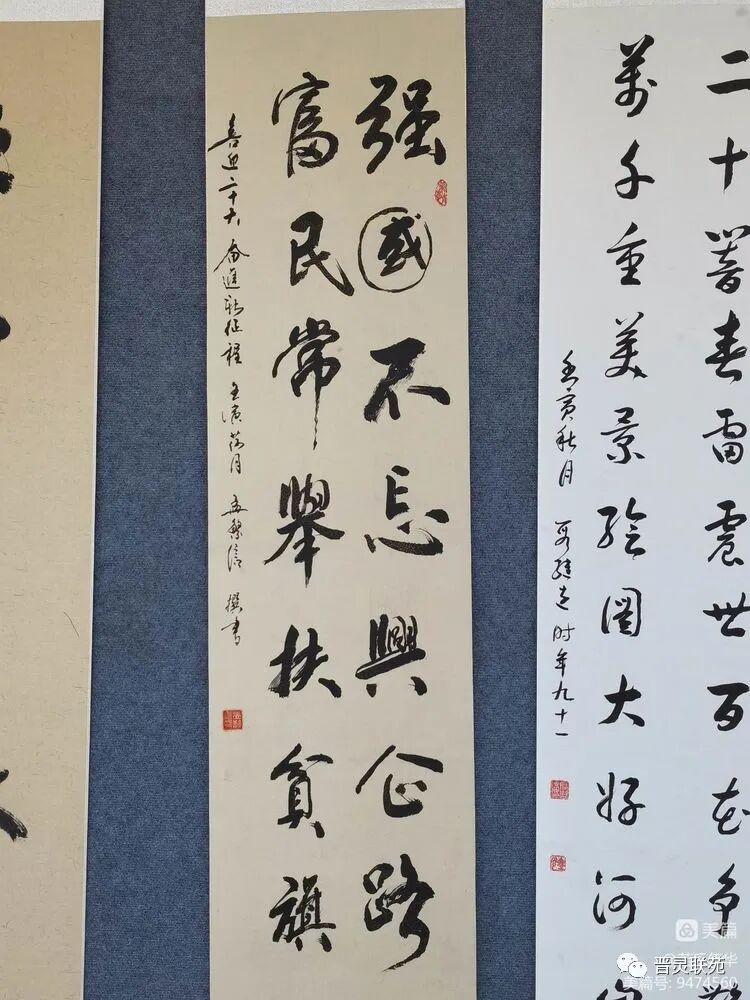 二十春雷震世百花争
萬千重美景繪圖大好河
壬寅秋月 时年九十一
强國不忘興企路
富民常舉扶貧旗
喜迎二十大 奋進新征程 壬寅荷月 孟繁信 撰書
美篇
普灵联苑
美篇号: 9474560